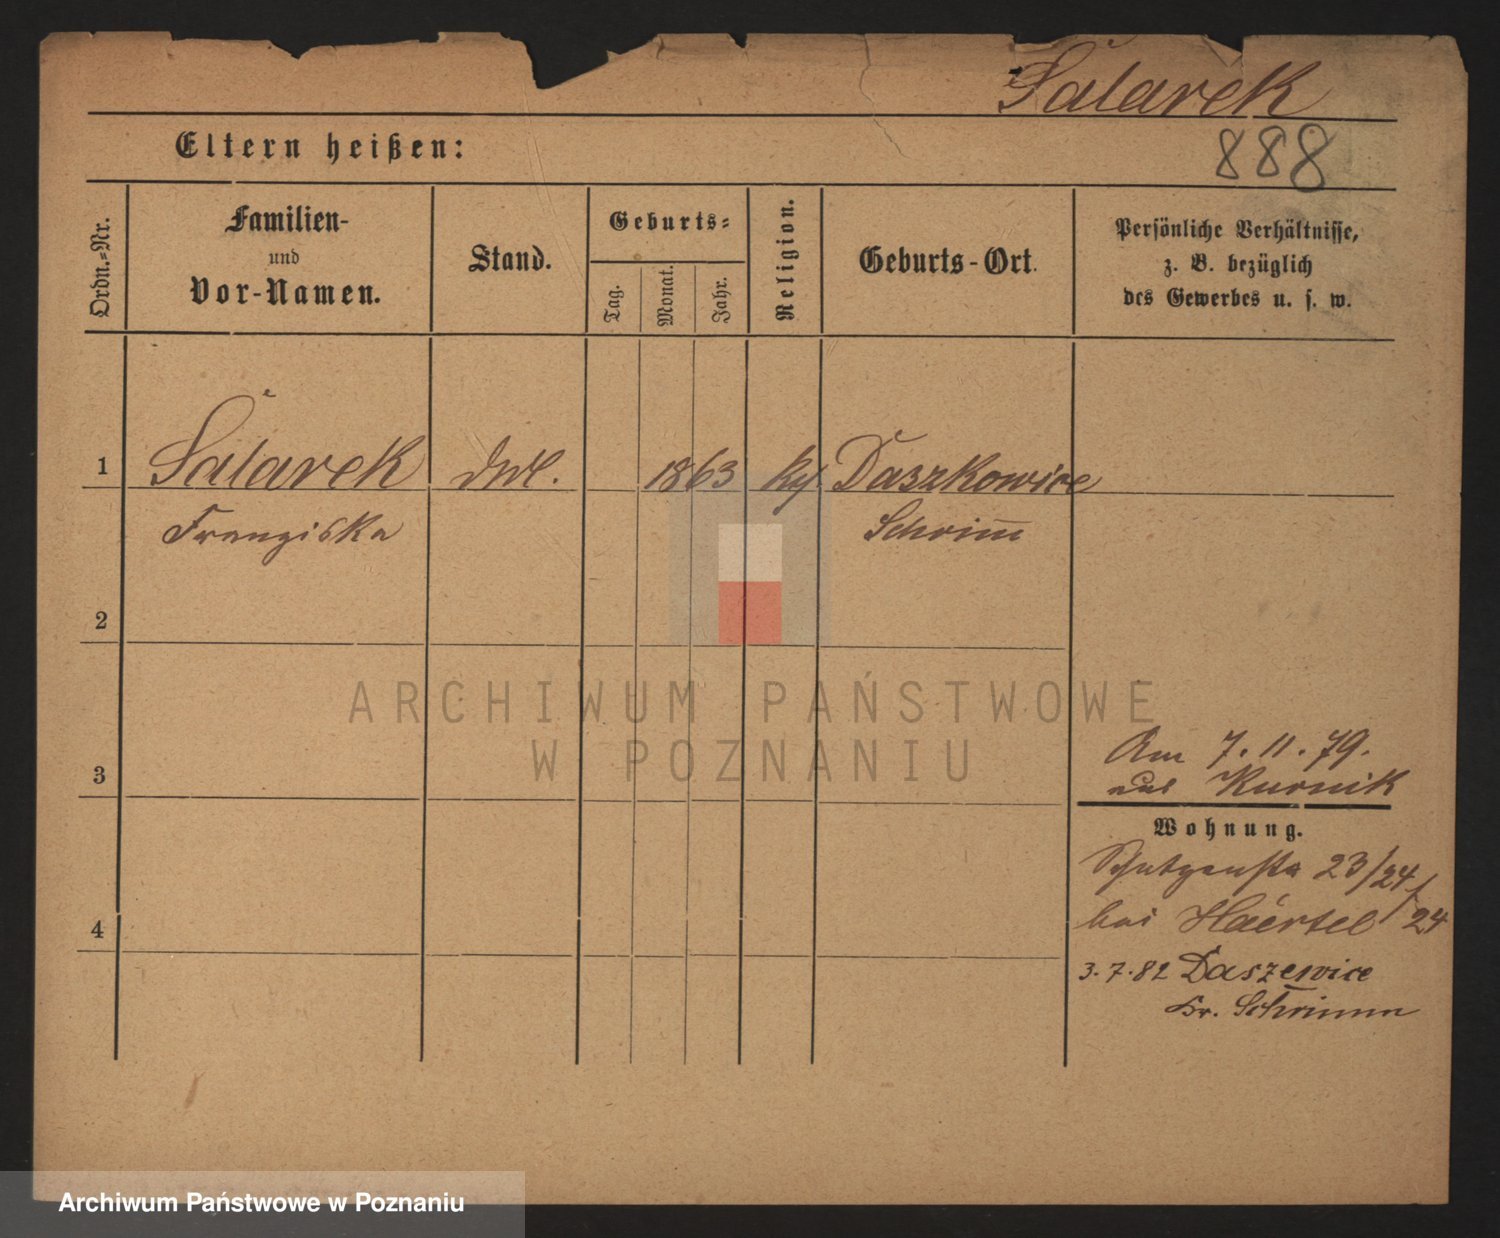 Salarek
Eltern heißen:
888
Ordn.-Nr.
Familien-
und
Vor-Namen.
Stand.
Geburts-
Tag.
Monat.
Jahr.
Religion.
Geburts-Ort.
Persönliche Verhältnisse,
z. B. bezüglich
des Gewerbes u. s. w.
1 Salarek 1863 Daszkowice
Franziska Schrim̅
2
3
4
Am 7. 11. 79.
aus Kurnik
Wohnung.
Schützenstr 23/24/
bei Haertel 24
3.7.82 Daszewice
Kr. Schrimm
ARCHIWUM PAŃSTWOWE
W POZNANIU
Archiwum Państwowe w Poznaniu